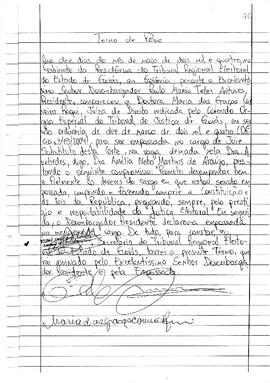 40
Termo de Posse
Aos dez dias do mês de maio de dois mil e quatro, no
Gabinete da Presidência do Tribunal Regional Eleitoral
do Estado de Goiás, em Goiânia, perante o Excelentís-
simo Senhor Desembargador Paulo Maria Teles Antunes,
Presidente, compareceu a Doutora Maria das Graças Car-
neiro Requi, Juíza de Direito indicada pelo Colendo Ór-
gão Especial do Tribunal de Justiça de Goiás, em ses-
são ordinária de dez de março de dois mil e quatro
, para ser empossada no cargo de Juíza
Substituta desta Corte, na vaga deixada pela Dra.
digo, Dra. Amélia Netto Martins de Araújo, pres-
tando o seguinte compromisso: Prometo desempenhar bem
e fielmente os deveres do cargo em que estou sendo em-
possada, cumprindo e fazendo cumprir a Constituição e
as leis da República, pugnando, sempre, pelo prestí-
gio e respeitabilidade da Justiça Eleitoral. Em segui-
da, o Desembargador Presidente declarou empossada
no cargo. De tudo, para constar, eu
Secretaria do Tribunal Regional Eleito-
ral do Estado de Goiás, lavrei o presente Termo, que
vai assinado pelo Excelentíssimo Senhor Desembarga-
dor Presidente e pela Empossada.